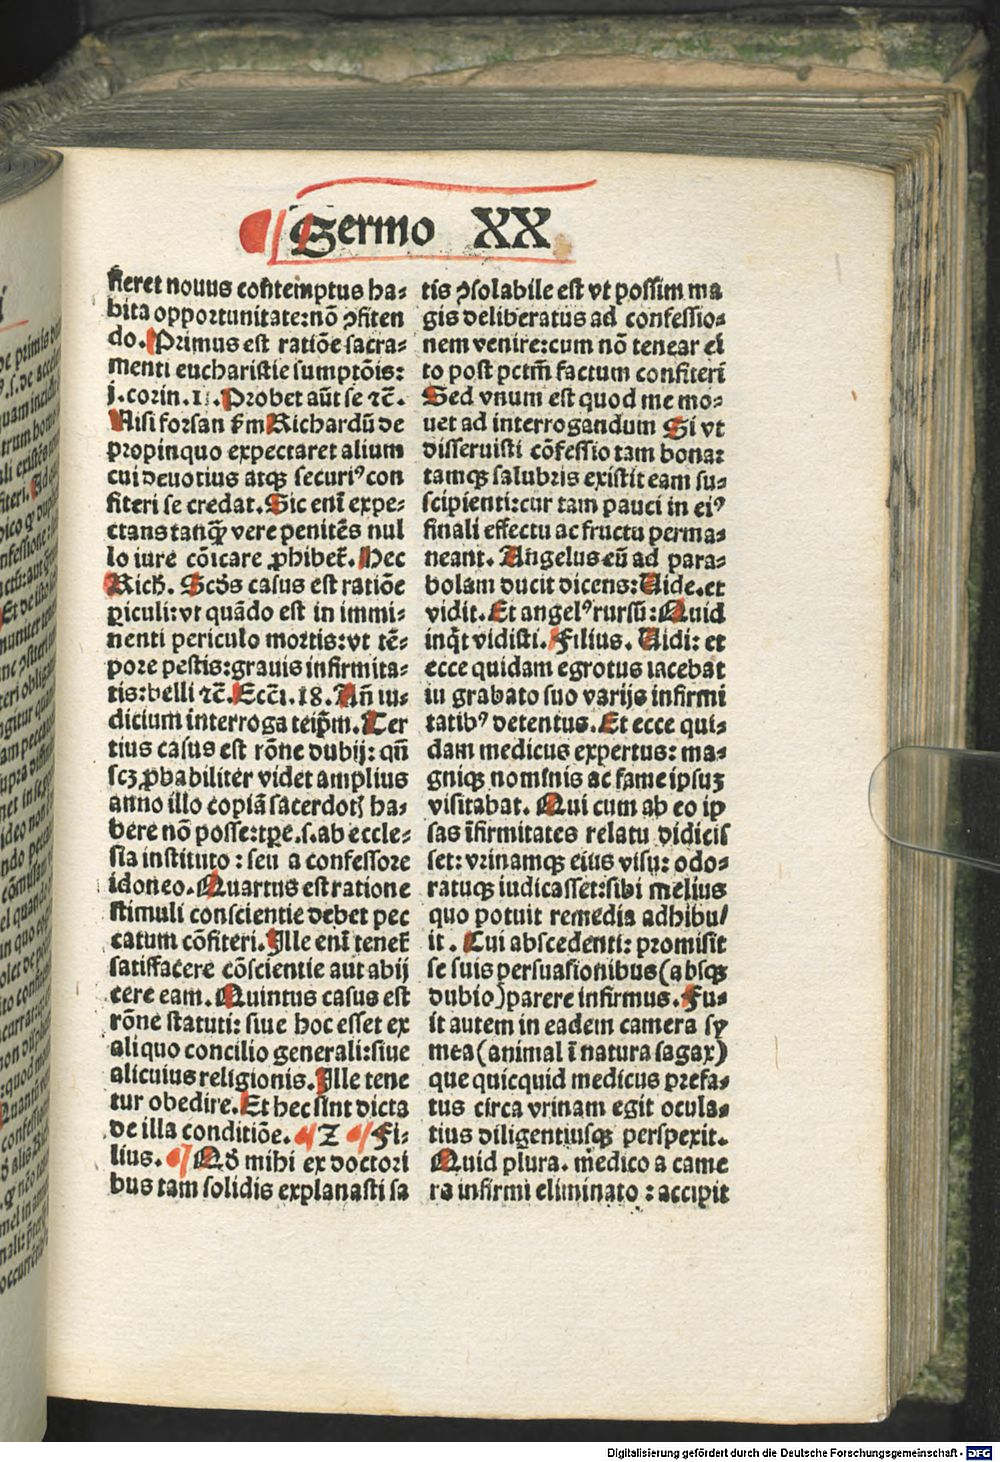 Sermo XX
fieret novus contemptus ha⸗
bita opportunitate: nō ↄfiten
do. Primus est ratiōe sacra⸗
menti eucharistie sumptōis:
j. corin. 11. Probet aūt se ⁊c̄.
Nisi forsan ẜm Richardū de
propinquo expectaret alium
cui devotius atqꝫ securiꝰ con
fiteri se credat. Sic eni̅ expe⸗
ctans tanqꝫ̄ vere penitēs nul
lo iure cōicare ꝓhibet᷑. Hec
Rich. Scd̄s casus est ratiōe
ꝑiculi: vt quādo est in immi⸗
nenti periculo mortis: vt tē⸗
pore pestis: grauis infirmita⸗
tis: belli ⁊c̄. Ecc̄i. 18. An̄ iu⸗
dicium interroga teip̄m. Ter
tius casus est rōne dubij: qn̄
scꝫ ꝓbabiliter videt amplius
anno illo copiā sacerdotꝭ ha⸗
bere nō posse: tꝑe .s. ab eccle⸗
sia instituto: seu a confessore
idoneo. Quartus est ratione
stimuli conscientie debet pec
catum cōfiteri. Ille eni̅ tenet᷑
satisfacere cōscientie aut abij
cere eam. Quintus casus est
rōne statuti: siue hoc esset ex
aliquo concilio generali: siue
alicuius religionis. Ille tene
tur obedire. Et hec sint dicta
de illa conditiōe. ¶ Z ¶ Fi⸗
lius. ¶ Qd̄ mihi ex doctori
bus tam solidis explanasti sa
tis ↄsolabile est vt possim ma
gis deliberatus ad confessio⸗
nem venire: cum nō tenear ci
to post pctm̄ factum confiteri
Sed vnum est quod me mo⸗
uet ad interrogandum Si vt
disseruisti cōfessio tam bonaꝛ
tamqꝫ salubris existit eam su⸗
scipienti: cur tam pauci in eiꝰ
finali effectu ac fructu perma⸗
neant. Angelus eū ad para⸗
bolam ducit dicens: Vide. et
vidit. Et angelꝰ rursū: Quid
inqͥt vidisti. Filius. Vidi: et
ecce quidam egrotus iacebat
iu grabato suo varijs infirmi
tatibꝰ detentus. Et ecce qui⸗
dam medicus expertus: ma⸗
gniqꝫ nominis ac fame ipsuꝫ
visitabat. Qui cum ab eo ip
sas īfirmitates relatu didicis
set: vrinamqꝫ eius visu: odo⸗
ratuqꝫ iudicasset: sibi melius
quo potuit remedia adhibu/
it. Cui abscedenti: promisit
se suis persuasionibus (absqꝫ
dubio) parere infirmus. Fu⸗
it autem in eadem camera sy
mea (animal ī natura sagax)
que quicquid medicus prefa⸗
tus circa vrinam egit ocula⸗
tius diligentiusqꝫ perspexit.
Quid plura. medico a came
ra infirmi eliminato: accipit
Digitalisierung gefördert durch die Deutsche Forschungsgemeinschaft - DFG